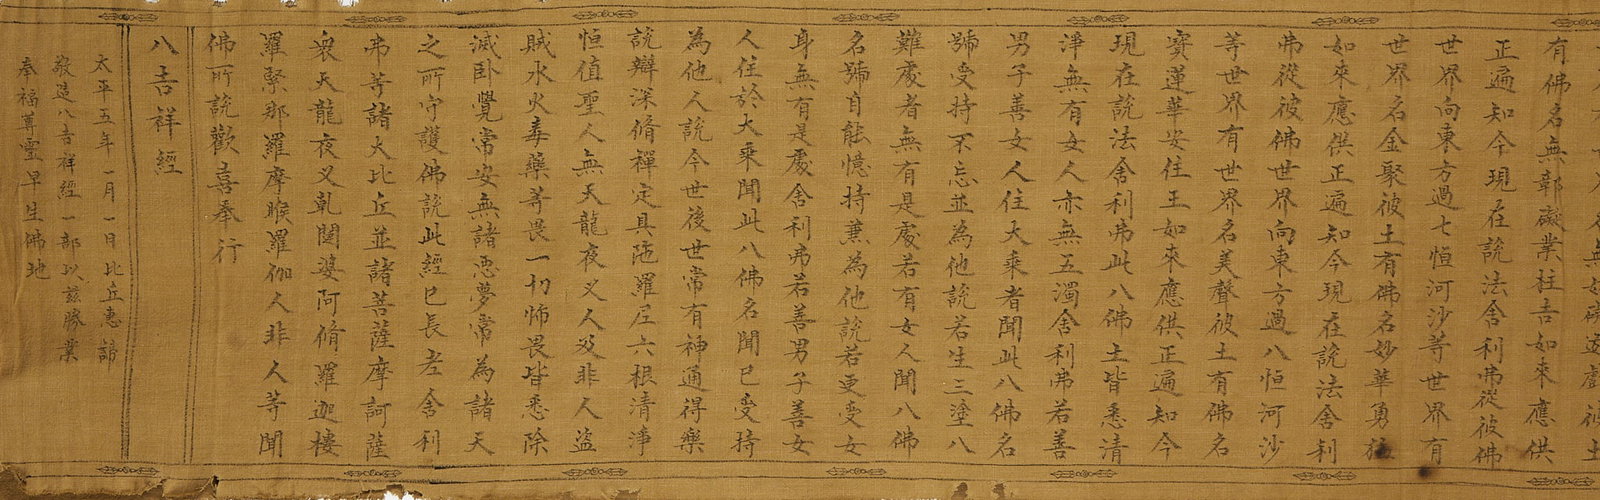 名無礙遊戲彼土
有佛名無鄣礙業柱吉如來應供
正遍知今現在說法舍利弗從彼佛
世界向東方過七恒河沙等世界有
世界名金聚彼土有佛名妙華勇猛
如來應供正遍知今現在說法舍利
弗從彼佛世界向東方過八恒河沙
等世界有世界名美聲彼土有佛名
寶蓮華安住王如來應供正遍知今
現在說法舍利弗此八佛土皆悉清
淨無有女人亦無五濁舍利弗若善
男子善女人住大乘者聞此八佛名
號受持不忘並為他說若生三塗八
難處者無有是處若有女人聞八佛
名號自能憶持兼為他說若更受女
身無有是處舍利弗若善男子善女
人住於大乘聞此八佛名聞已受持
為他人說今世後世常有神通得樂
說辯深脩禪定具陁羅尼六根清淨
恒值聖人無天龍夜叉人及非人盜
賊水火毒藥等畏一切怖畏皆悉除
滅卧覺常安無諸惡夢常為諸天
之所守護佛說此經已長老舍利
弗等諸大比丘並諸菩薩摩訶薩
衆天龍夜叉乹闥婆阿脩羅迦樓
羅緊那羅摩睺羅伽人非人等聞
佛所說歡喜奉行
八吉祥經
太平五年一月一日比丘惠諳
敬造八吉祥經一部以兹勝業
奉福尊靈早生佛地